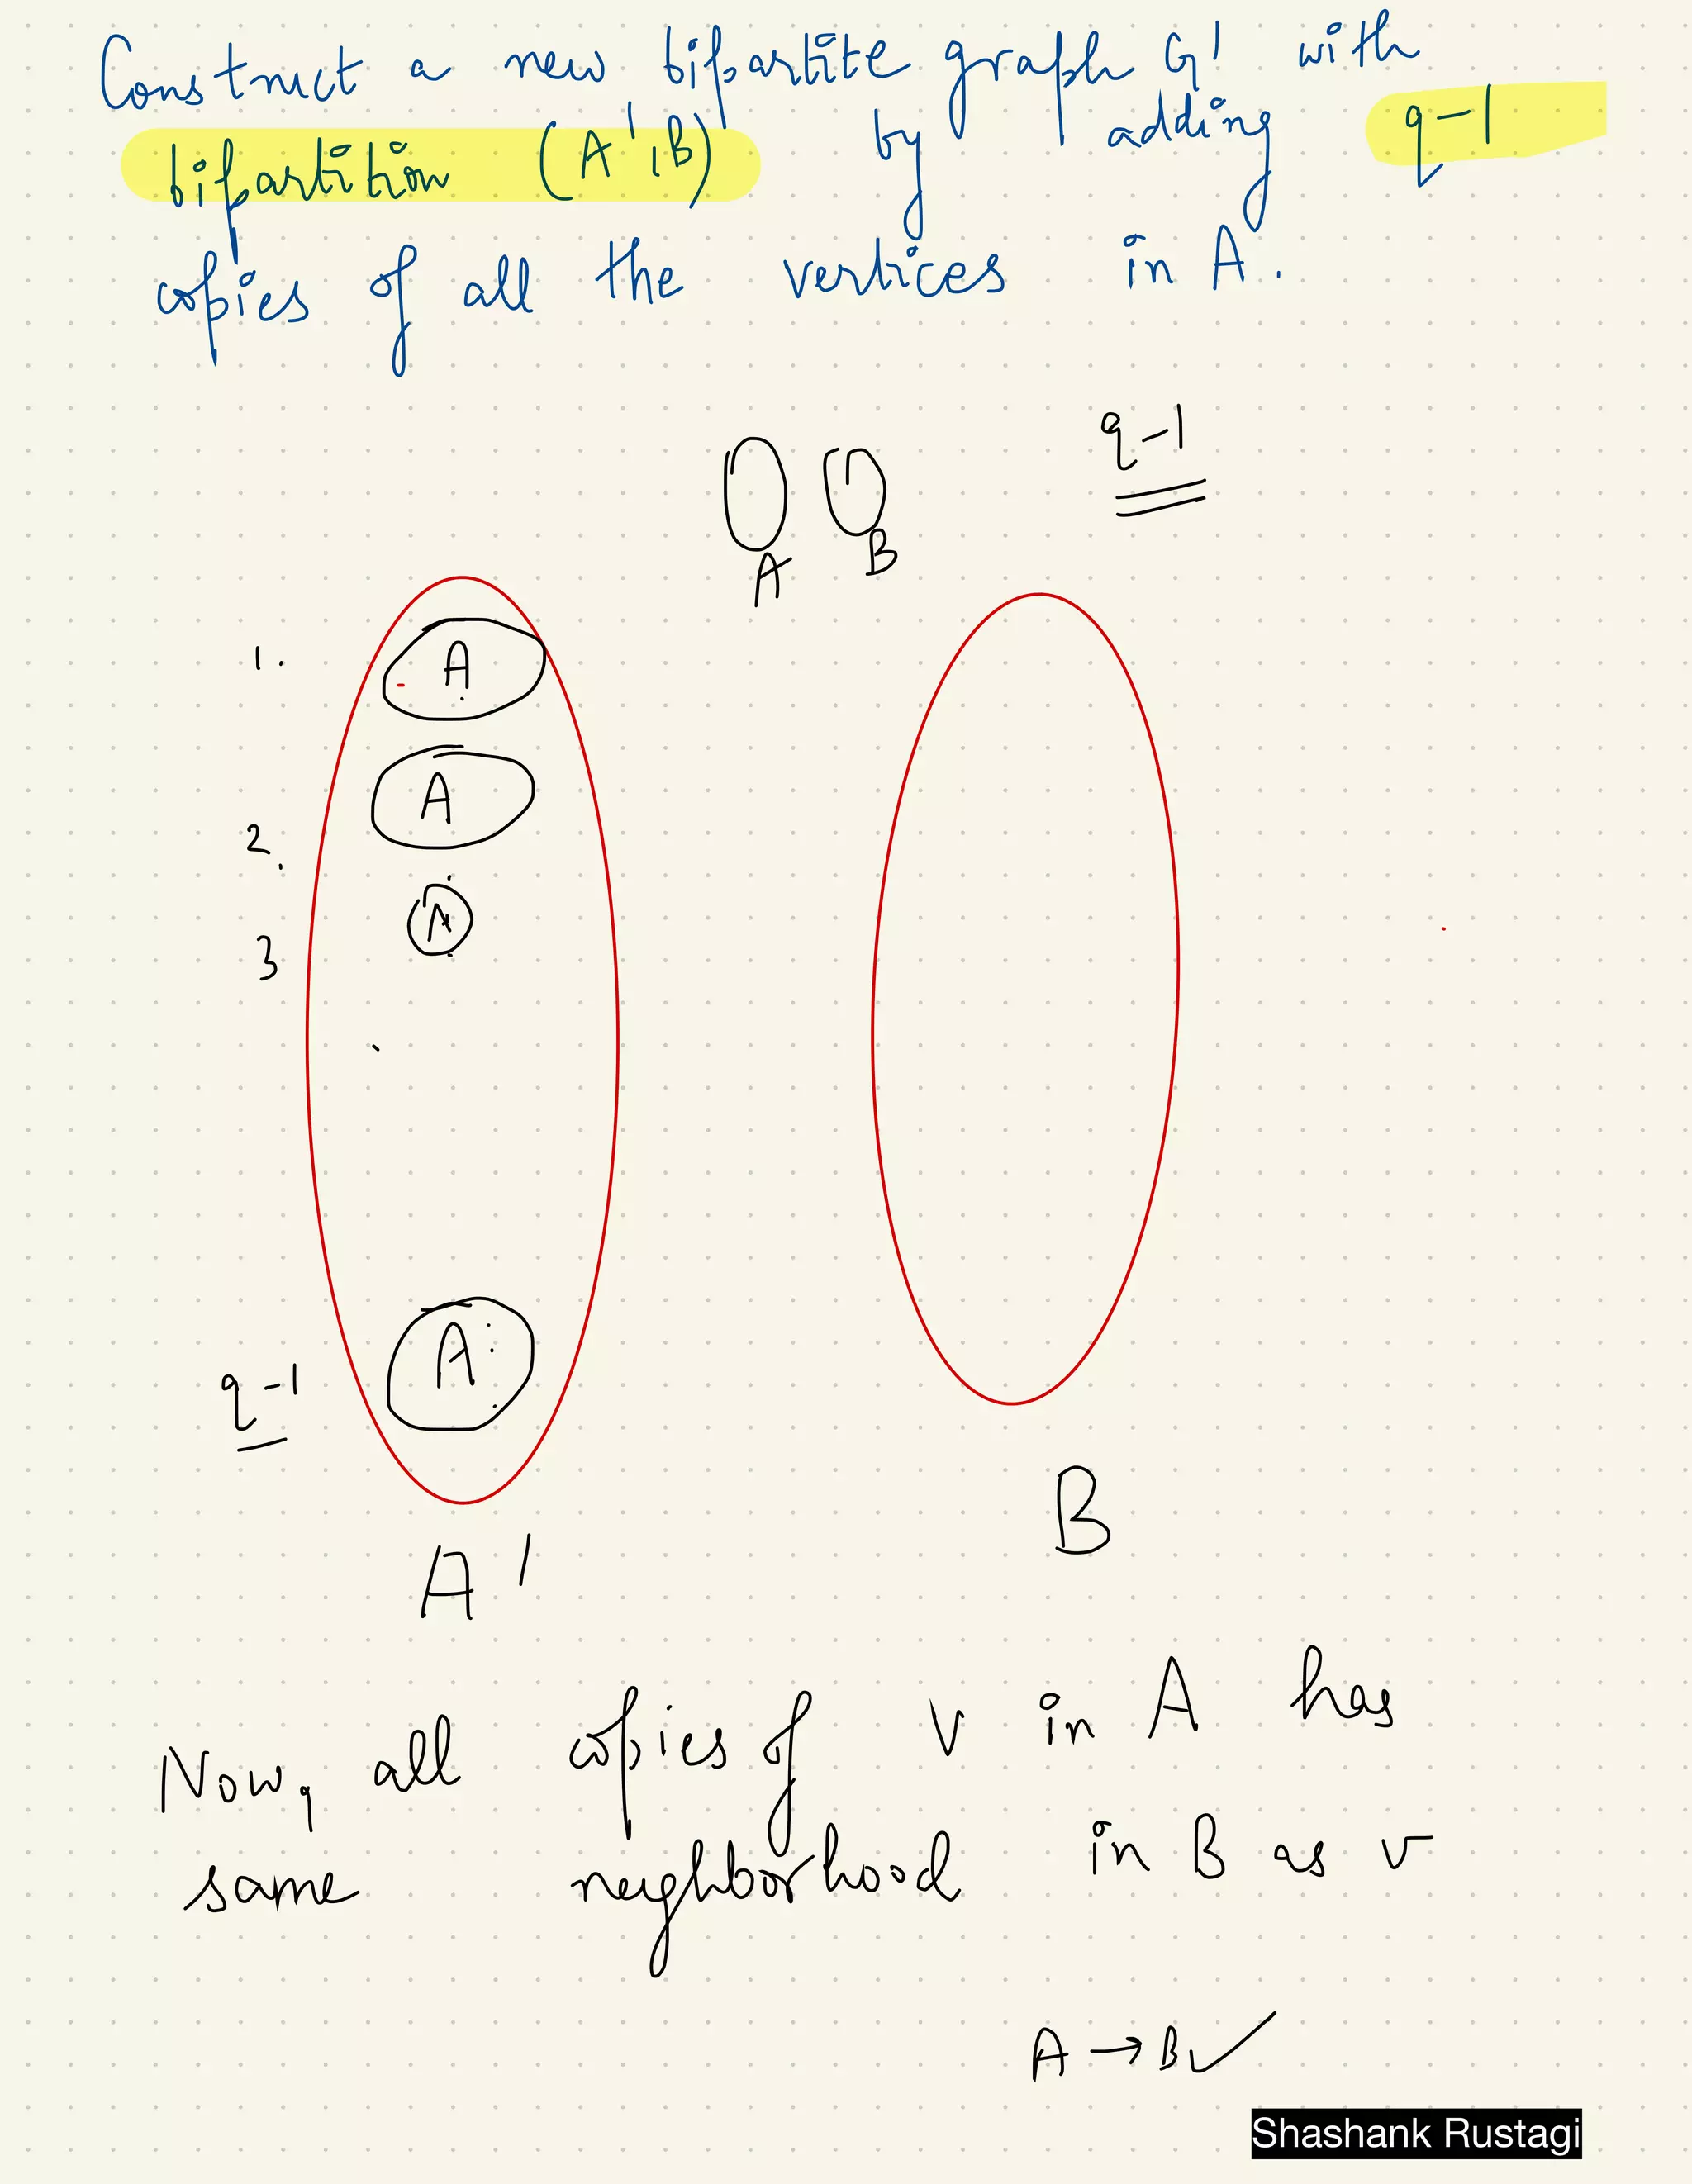 Construct a new bipartite graph G' with
bipartition (A',B) by adding q-1
copies of all the vertices in A.
q-1
A B
1. A
A
2.
A
3
q-1 A
B
A'
Now, all copies of v in A has
same neighborhood in B as v
A → B ✓
Shashank Rustagi